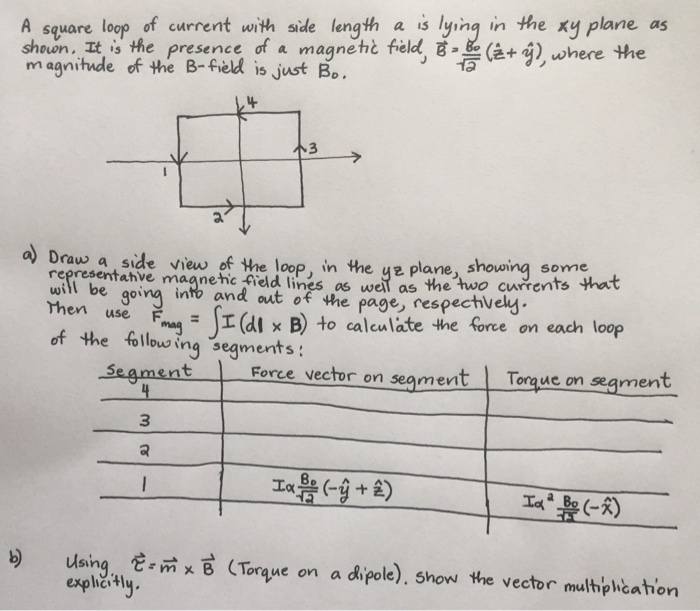 A square loop of current with side length a is lying in the xy plane as
shown. It is the presence of a magnetic field, B⃗ = B₀/√2 (ẑ + ŷ), where the
magnitude of the B-field is just B₀.
4
3
1
2
a) Draw a side view of the loop, in the yz plane, showing some
representative magnetic field lines as well as the two currents that
will be going into and out of the page, respectively.
Then use F mag = ∫I (dl x B) to calculate the force on each loop
of the following segments:
Segment Force vector on segment Torque on segment
4
3
2
1 Ia B₀/√2 (-ŷ + ẑ) Ia² B₀/√2 (-x̂)
b) Using τ⃗ = m⃗ x B⃗ (Torque on a dipole). Show the vector multiplication
explicitly.